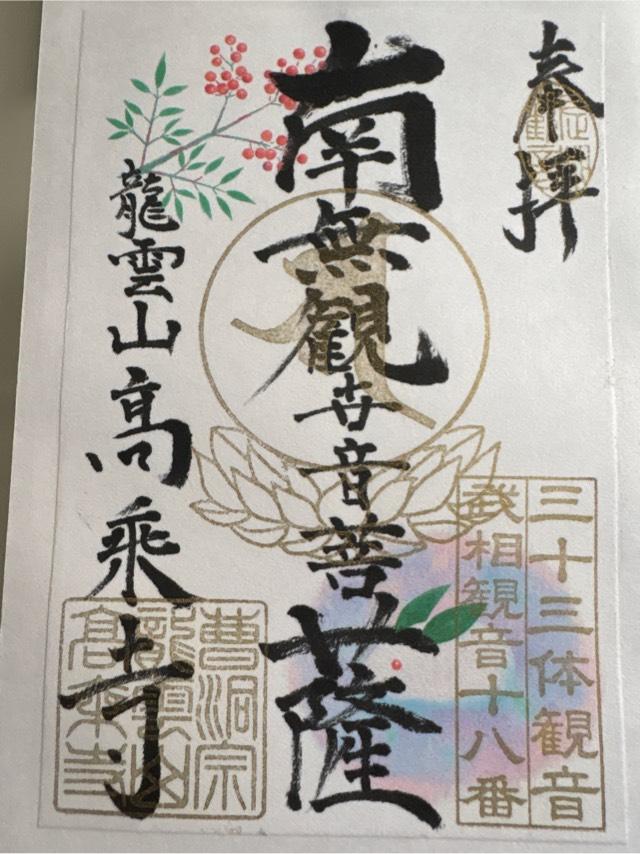 奉拝
三十三体観音
武相観音十八番
南無観世音菩薩
龍雲山高乗寺
曹洞宗
龍雲山
高乗寺